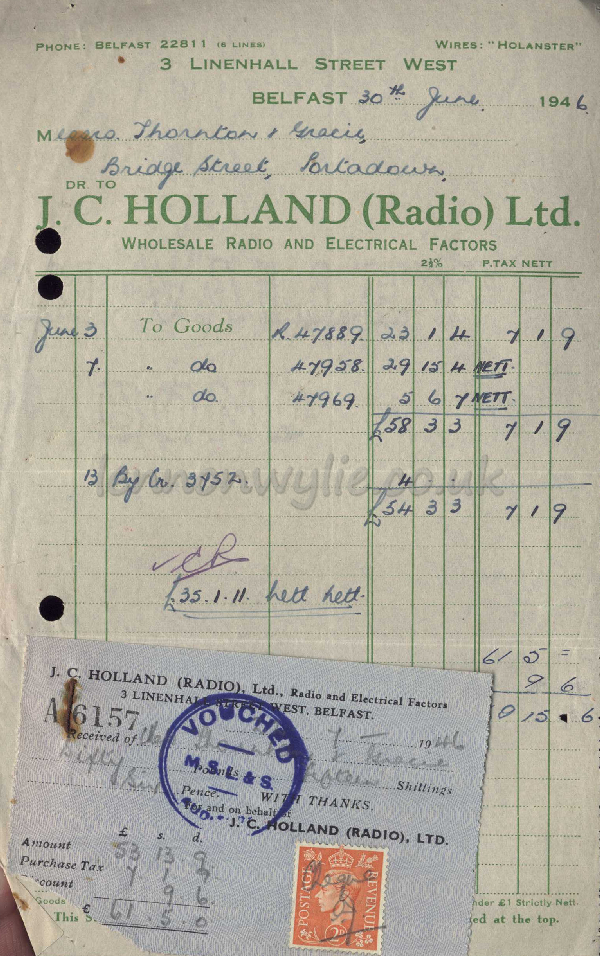 PHONE: BELFAST 22811 (5 LINES) WIRES: "HOLANSTER"
3 LINENHALL STREET WEST
BELFAST 30th June 1946
Messrs. Thornton & Gracie,
Bridge Street, Portadown.
DR. TO
J. C. HOLLAND (Radio) Ltd.
WHOLESALE RADIO AND ELECTRICAL FACTORS
2½% P.TAX NETT
June 3 To Goods R.47889 23 1 4 7 1 9
7. " do 47958 29 15 4 NETT.
" do. 47969 5 6 7 NETT.
£58 3 3 7 1 9
lennonwylie.co.uk
13 By Cr. 3952. 4 . .
£54 3 3 7 1 9
£35.1.11. nett nett.
61 5 =
9 6
0 15 . 6
J. C. HOLLAND (RADIO), Ltd., Radio and Electrical Factors
3 LINENHALL STREET WEST, BELFAST.
A 6157
7 - 1946
Received of Thornton & Gracie
Sixty Pounds fifteen Shillings
Six Pence. WITH THANKS.
For and on behalf of
J. C. HOLLAND (RADIO), LTD.
VOUCHED
M.S.L & S.
£ s. d.
Amount 53 13 9
Purchase Tax 7 1 9
9 6
£ 61 5 0
POSTAGE REVENUE
2D
Goods under £1 Strictly Nett
This S ed at the top.